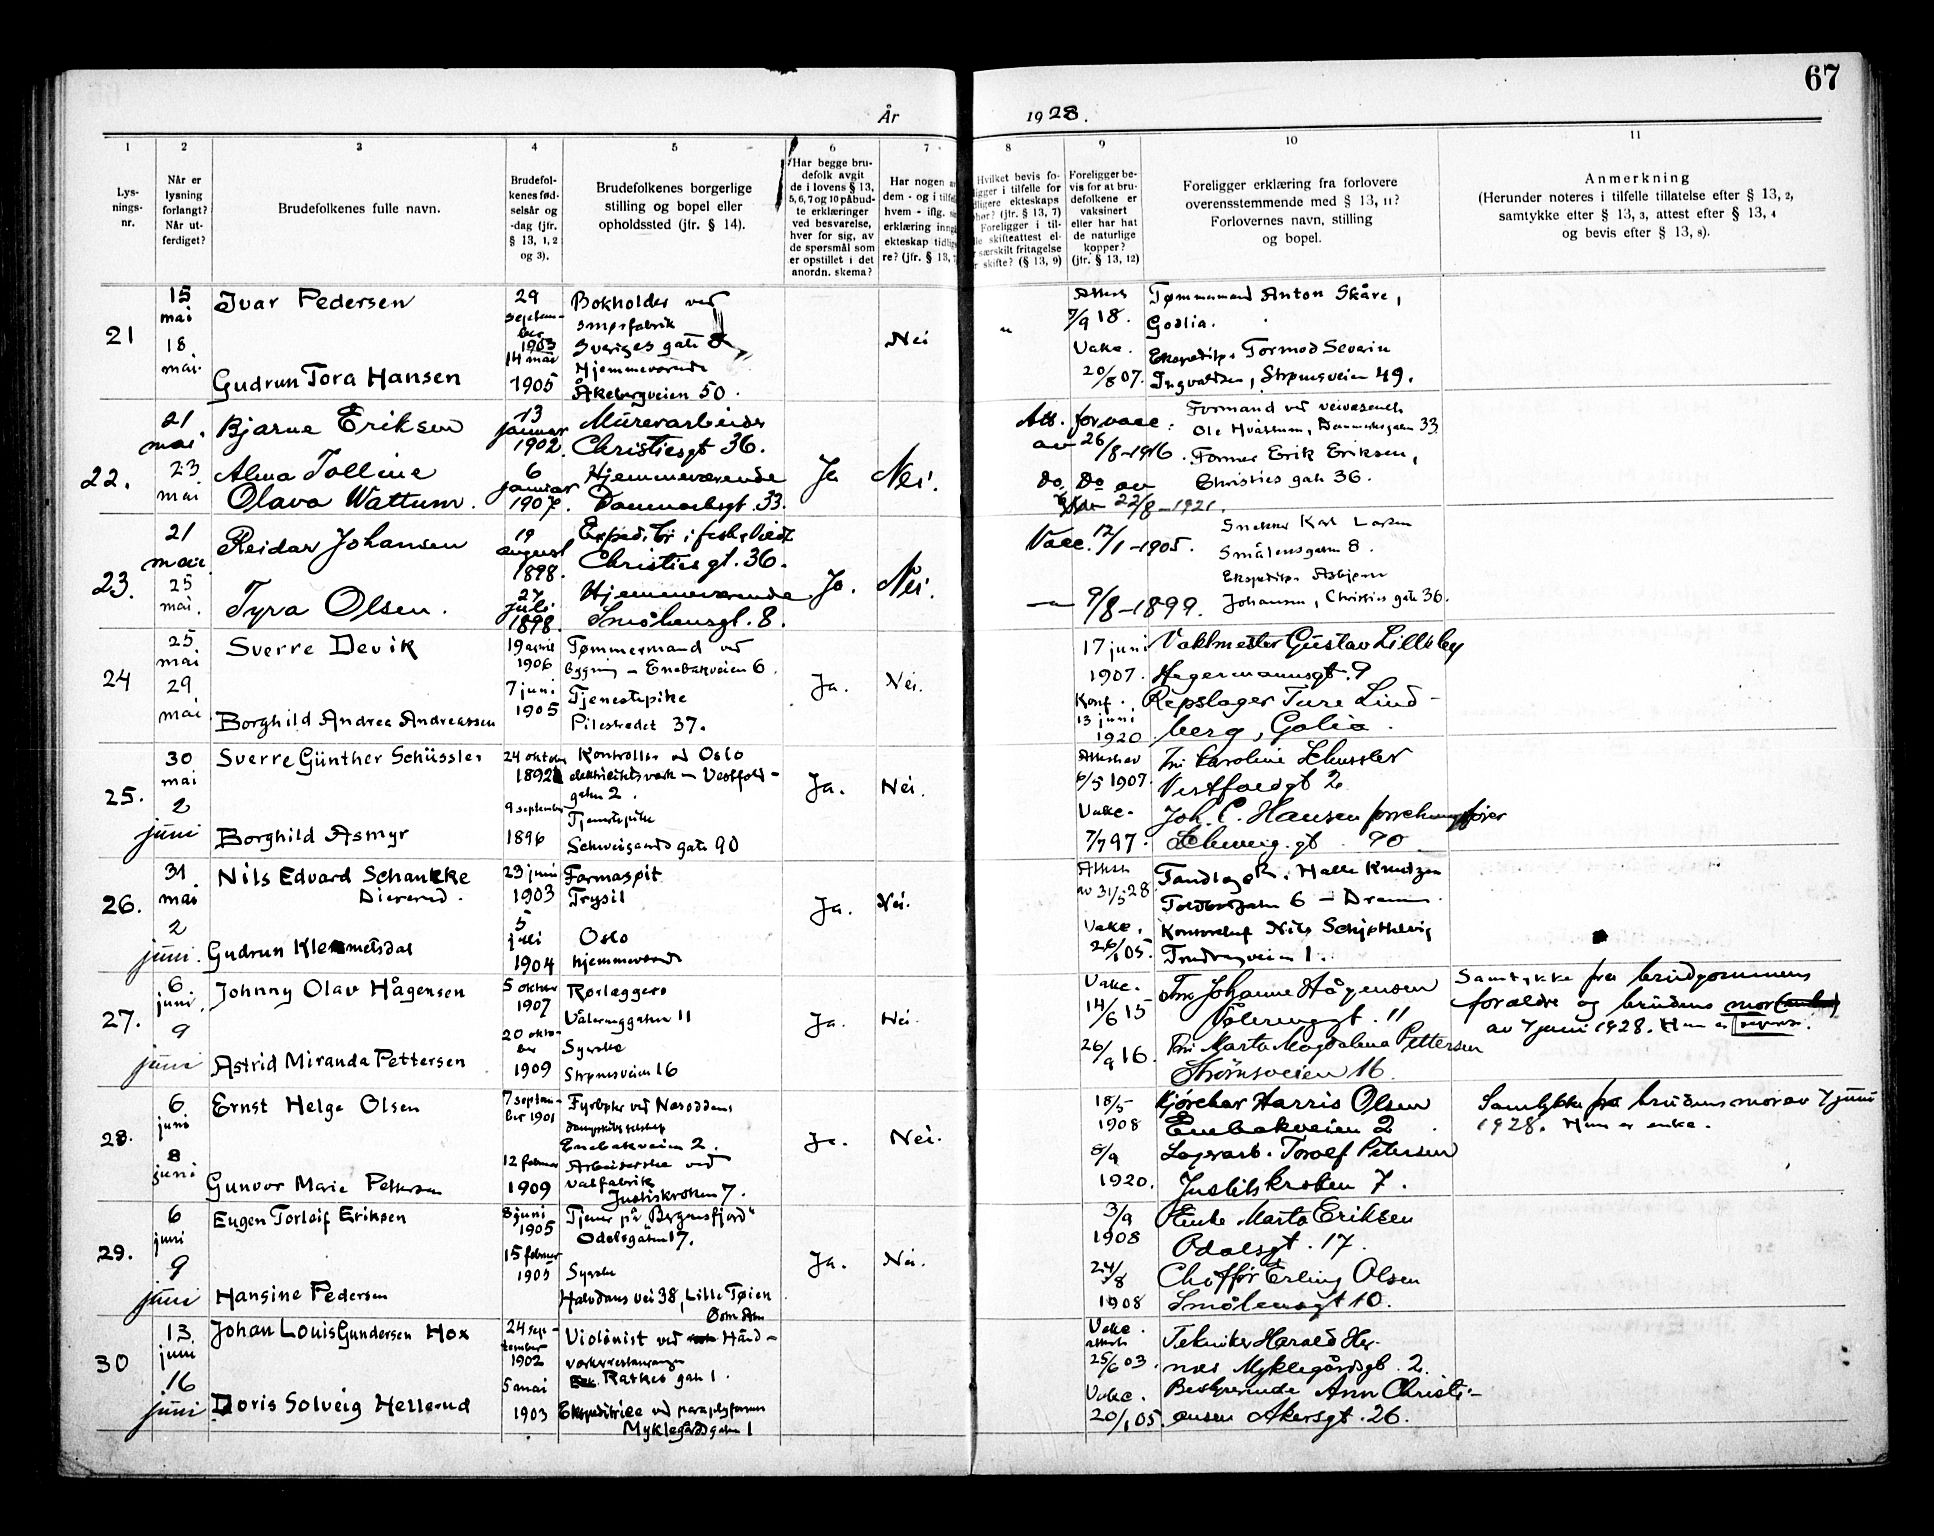 67
År 1928.
1
Lys-
nings-
nr.
2
Når er
lysning
forlangt?
Når ut-
ferdiget?
3
Brudefolkenes fulle navn.
4
Brudefol-
kenes fød-
selsår og
-dag (jfr.
§ 13, 1, 2
og 3).
5
Brudefolkenes borgerlige
stilling og bopel eller
opholdssted (jfr. § 14).
6
Har begge bru-
defolk avgit
de i lovens § 13,
5, 6, 7 og 10 påbud-
te erklæringer
ved besvarelse,
hver for sig, av
de spørsmål som
er opstillet i det
anordn. skema?
7
Har nogen
dem - og i
hvem - iflg.
erklæring
ekteskap
re? (jfr. § 13,
8
Hvilket bevis fo-
i tilfelle for
ekteskaps
(jfr. § 13, 7)
Foreligger i til-
skifteattest el-
særskilt fritagelse
skifte? (§ 13, 9)
9
Foreligger be-
vis for at bru-
defolkene er
vaksinert
eller har hat
de naturlige
kopper?
(jfr. § 13, 12)
10
Foreligger erklæring fra forlovere
overensstemmende med § 13, 11?
Forlovernes navn, stilling
og bopel.
11
Anmerkning
(Herunder noteres i tilfelle tillatelse efter § 13, 2,
samtykke efter § 13, 3, attest efter § 13, 4
og bevis efter § 13, 8).
21
15
mai
18
mai.
Ivar Pedersen
Gudrun Tora Hansen
29
septem-
ber
1903
14 mai
1905
Bokholder ved
smørfabrik
Sveriges gate 8
Hjemmeværende
Åkebergveien 50.
Nei
"
Attest
7/9 18.
Vakc.
20/8 07.
Tømmermand Anton Skåre,
Godlia.
Ekspeditør Tormod Severin
Ingvaldsen, Strømsveien 49.
22.
21
mai
23
mai
Bjarne Eriksen
Alma Tolline
Olava Wattum.
13
januar
1902.
6
januar
1907.
Mürerarbeider
Christiesgt 36.
Hjemmeværende
Danmarksgt. 33.
Ja
Nei.
Att. for vacc.
av 26/8-1916.
Do Do av
22/8-1921.
Formand ved veivæsenet
Ole Hvattum, Danmarksgaten 33.
Former Erik Eriksen,
Christies gate 36.
23.
21
mai
25
mai.
Reidar Johansen
Tyra Olsen.
19
august
1898.
27
juli
1898.
Christiesgt. 36.
Hjemmeværende
Smålensgt. 8.
Ja.
Nei.
Vacc. 12/1-1905.
9/8-1899.
Snekker Karl Larsen
Smålensgaten 8.
Ekspeditør Asbjørn
Johansen, Christies gate 36.
24
25
mai
29
mai
Sverre Devik
Borghild Andrea Andreassen
19 april
1906
7 juni
1905
Tømmermand ved
bygning - Enebakveien 6.
Tjenestepike
Pilestredet 37.
Ja.
Nei.
17 juni
1907.
Konf.
13 juni
1920
Vaktmester Gustav Lilleby
Hegermannsgt. 9
Repslager Ture Lind-
berg, Galia.
25.
30
mai
2
juni
Sverre Günther Schüssler
Borghild Asmyr
24 oktober
1892
9 september
1896
Kontrollør ved Oslo
elektricitetsverk - Vestfold-
gaten 2.
Tjenestepike
Schweigaards gate 90
Ja.
Nei.
Attest av
6/5 1907.
Vakc.
7/7 97.
Fru Karoline Schussler
Vestfoldgt 2
Joh. C. Hansen forretningsfører
Schweig.gt. 90
26.
31
mai
2
juni.
Nils Edvard Schancke
Diererud.
Gudrun Klemmetsdal
23 juni
1903
5
juli
1904
Farmasøit
Trysil
Oslo
hjemmeværende
Ja.
Nei.
Attest
av 31/5-28
Vakc.
26/1 05.
Tandlæge R. Halle Knutzen
Toldbodgaten 6 - Drammen.
Kontorchef Nils Schjøthelvig
Trudvangveien 1.
27.
6
juni.
9
juni
Johnny Olav Hågensen
Astrid Miranda Pettersen
5 oktober
1907
20 okto-
ber
1909
Rørlæggers
Vålerenggaten 11
Syerske
Strømsveien 16
Ja.
Nei.
Vakc.
14/6 15
26/9 16.
Fru Johanne Hågensen
Vålerenggt. 11
Fru Marta Magdalena Pettersen
Strømsveien 16.
Samtykke fra brudgommens
forældre og brudens mor
av 7 juni 1928. Hun er
28.
6
juni
8
juni
Ernst Helge Olsen
Gunvor Marie Pettersen
7 septem-
ber 1901
12 februar
1909
Fyrbøter ved Nesoddens
dampskibsselskap
Enebakveien 2.
Arbeiderske ved
valfabrik
Justiskroken 7.
Ja.
Nei.
18/5-
1908
8/9
1920.
Kjørekar Harris Olsen
Enebakveien 2.
Lagerarb. Torolf Petersen
Justitskroken 7.
Samtykke fra brudens mor av 7 juni
1928. Hun er enke.
29.
6
juni
9
juni
Eugen Torleif Eriksen
Hansine Pedersen
8 juni
1905
15 februar
1905
Tjener på "Bergensfjord"
Odelsgaten 17.
Syerske
Halvdans vei 38, Lille Tøien
Ja.
Nei.
3/9
1908
24/8
1908
Enke Marta Eriksen
Odalsgt. 17.
Chaffør Erling Olsen
Smålensgt 10.
30
13
juni
16
juni
Johan Louis Gundersen Hox
Doris Solveig Hellerud
24 sep-
tember
1902
5 mai
1903
Violinist ved Hånd-
verkerrestauranten
Ratkes gate 1.
Ekspeditrice ved paraplyforretn
Myklegårdsgaten 1
Vakc.
attest
25/6 03.
Vakc.
20/1 05.
Tekniker Harald Her-
næs Myklegårdsgt. 2.
Bestyrerinde Ann Christi-
ensen Akersgt. 26.